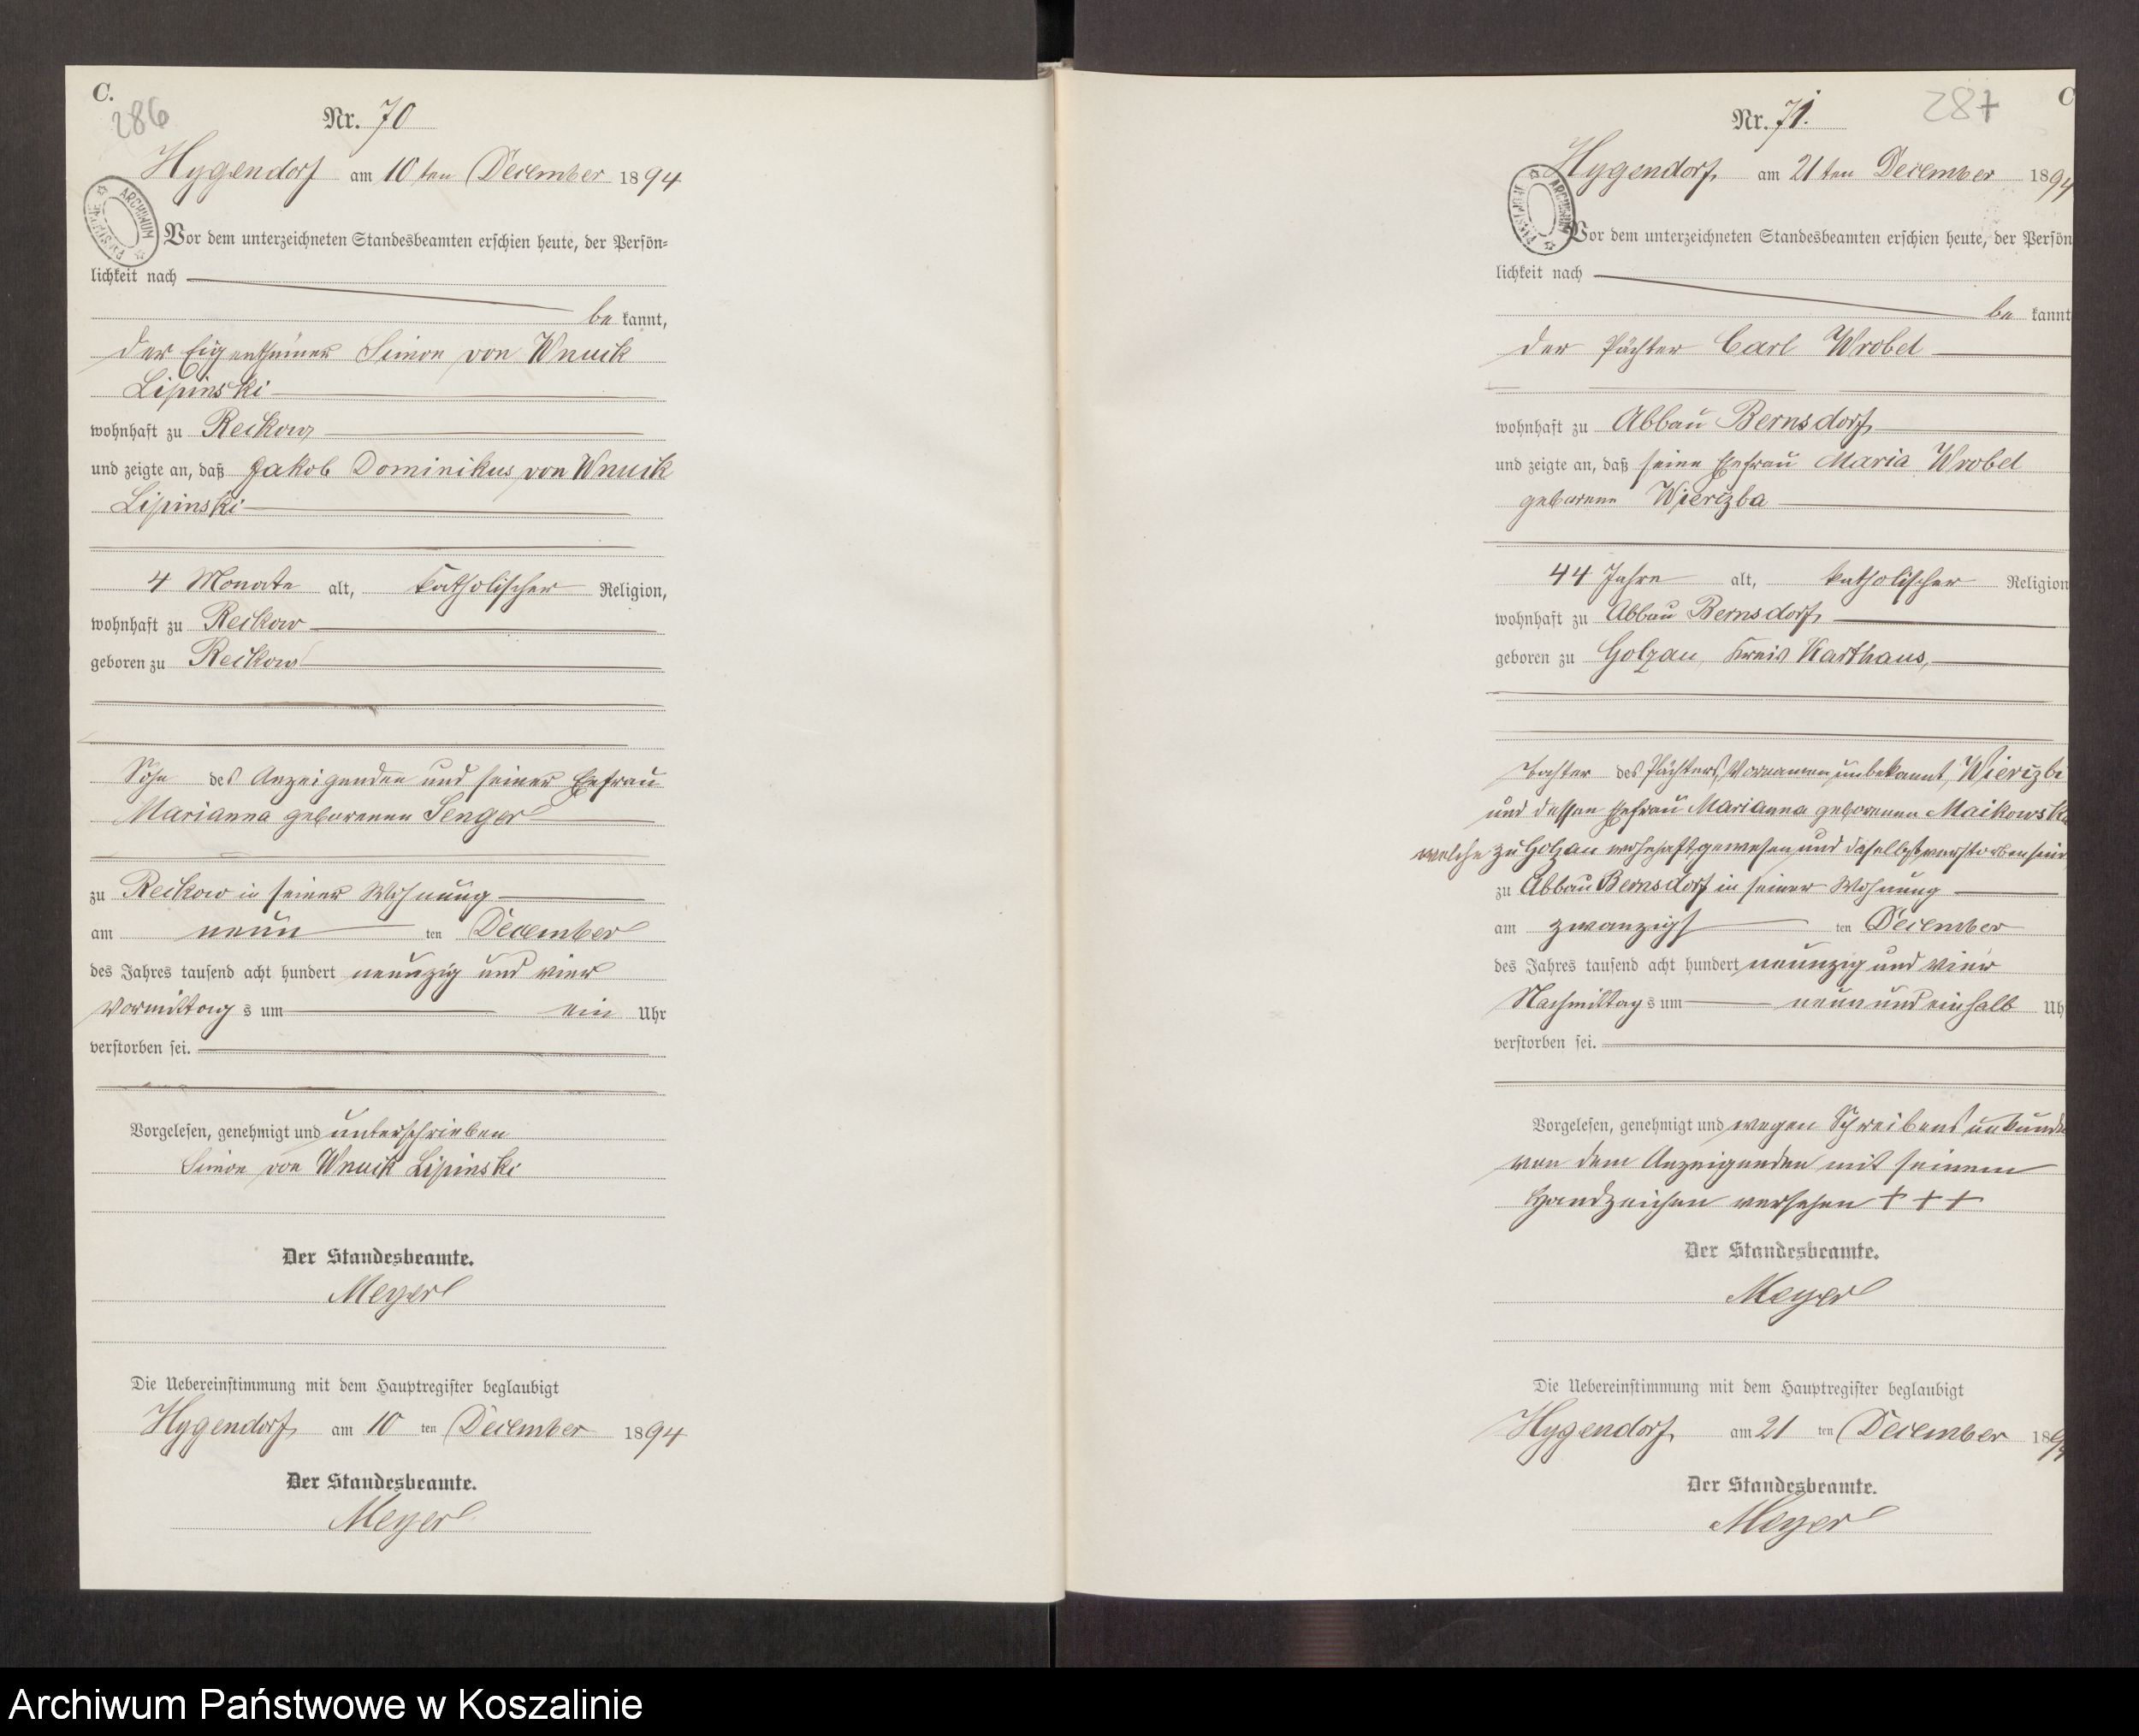 C.
286
Nr. 70
Hygendorf am 10ten December 1894
ARCHIWUM PAŃSTWOWE
Vor dem unterzeichneten Standesbeamten erschien heute, der Persön=
lichkeit nach
be kannt,
der Eigenthümer Simon von Wnuck
Lipinski
wohnhaft zu Reckow
und zeigte an, daß Jakob Dominikus von Wnuck
Lipinski
4 Monate alt, katholischer Religion,
wohnhaft zu Reckow
geboren zu Reckow
Sohn des Anzeigenden und seiner Ehefrau
Marianna geborenen Senger
zu Reckow in seiner Wohnung
am neun ten December
des Jahres tausend acht hundert neunzig und vier
Vormittag s um ein Uhr
verstorben sei.
Vorgelesen, genehmigt und unterschrieben
Simon von Wnuck Lipinski
Der Standesbeamte.
Meyer
Die Uebereinstimmung mit dem Hauptregister beglaubigt
Hygendorf am 10 ten December 1894
Der Standesbeamte.
Meyer
287
C
Nr. 71.
Hygendorf, am 21ten December 1894
ARCHIWUM PAŃSTWOWE
Vor dem unterzeichneten Standesbeamten erschien heute, der Persön
lichkeit nach
be kannt
der Pächter Carl Wrobel
wohnhaft zu Abbau Bernsdorf
und zeigte an, daß seine Ehefrau Maria Wrobel
geborene Wierczba
44 Jahre alt, katholischer Religion
wohnhaft zu Abbau Bernsdorf,
geboren zu Golzau, Kreis Karthaus,
Tochter des Pächters, Vornamen unbekannt, Wierczba
und dessen Ehefrau Marianna geborenen Maikowska
welche zu Golzau wohnhaft gewesen und daselbst verstorben sind
zu Abbau Bernsdorf in seiner Wohnung
am zwanzigst ten December
des Jahres tausend acht hundert neunzig und vier
Nachmittag s um neun und einhalb Uh
verstorben sei.
Vorgelesen, genehmigt und wegen Schreibens unkunde
von dem Anzeigenden mit seinem
Handzeichen versehen + + +
Der Standesbeamte.
Meyer
Die Uebereinstimmung mit dem Hauptregister beglaubigt
Hygendorf, am 21 ten December 1894
Der Standesbeamte.
Meyer
Archiwum Państwowe w Koszalinie